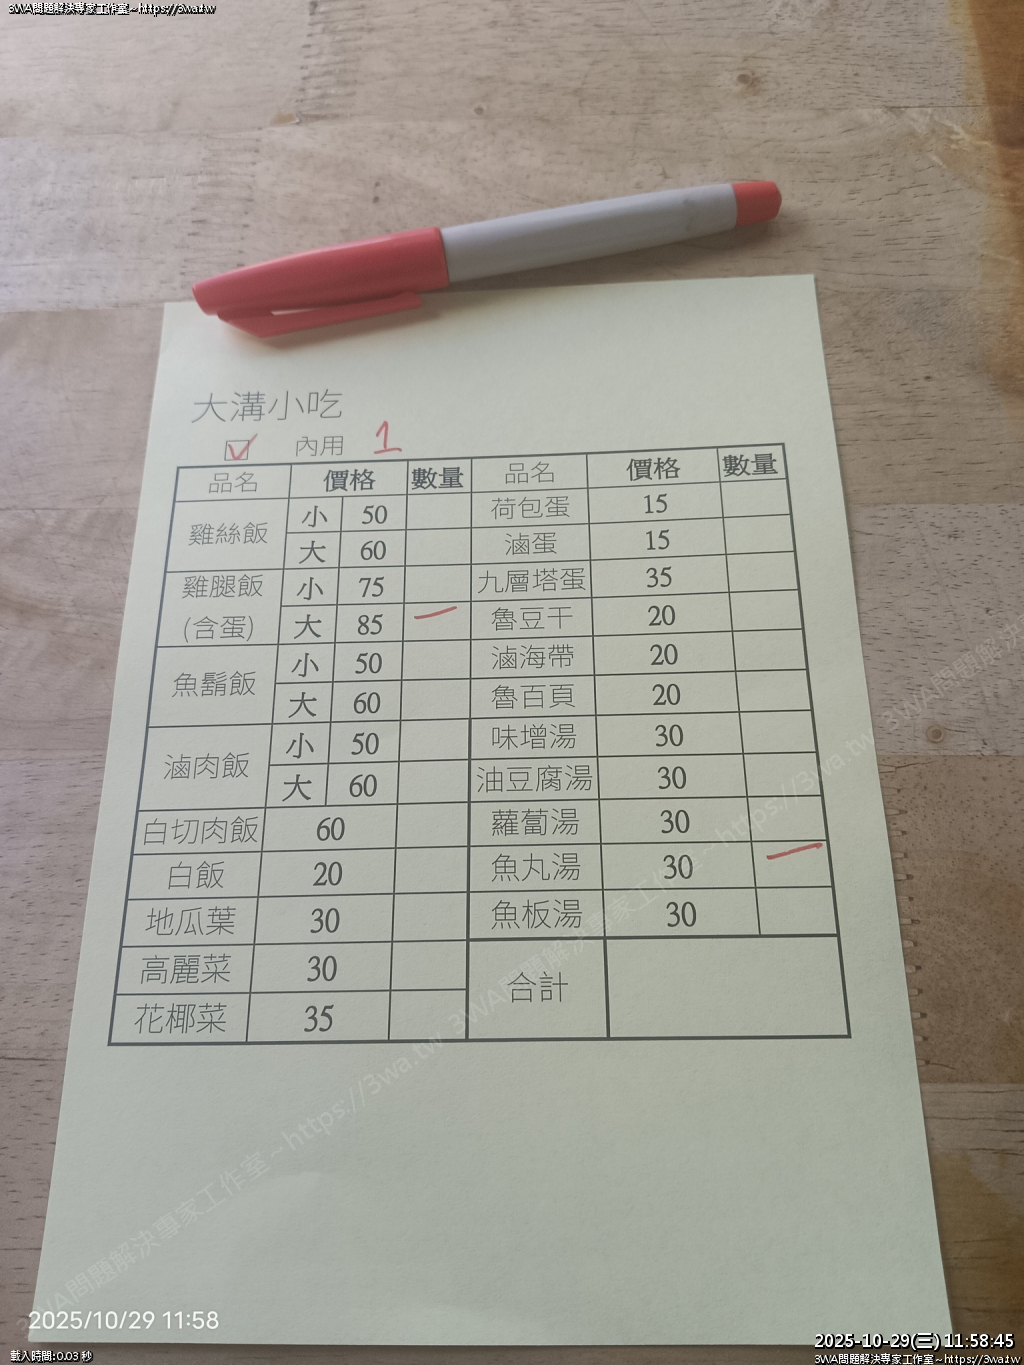 3WA問題解決專家工作室~https://3wa.tw
大溝小吃
☑ 內用 1
品名 價格 數量 品名 價格 數量
雞絲飯 小 50 荷包蛋 15
大 60 滷蛋 15
雞腿飯 小 75 九層塔蛋 35
(含蛋) 大 85 一 魯豆干 20
魚鬍飯 小 50 滷海帶 20
大 60 魯百頁 20
滷肉飯 小 50 味增湯 30
大 60 油豆腐湯 30
白切肉飯 60 蘿蔔湯 30
白飯 20 魚丸湯 30 一
地瓜葉 30 魚板湯 30
高麗菜 30 合計
花椰菜 35
3WA問題解決專家工作室~https://3wa.tw 3WA問題解決專家工作室~https://3wa.tw 3WA問題解決
2025/10/29 11:58
載入時間:0.03 秒
2025-10-29(三) 11:58:45
3WA問題解決專家工作室~https://3wa.tw